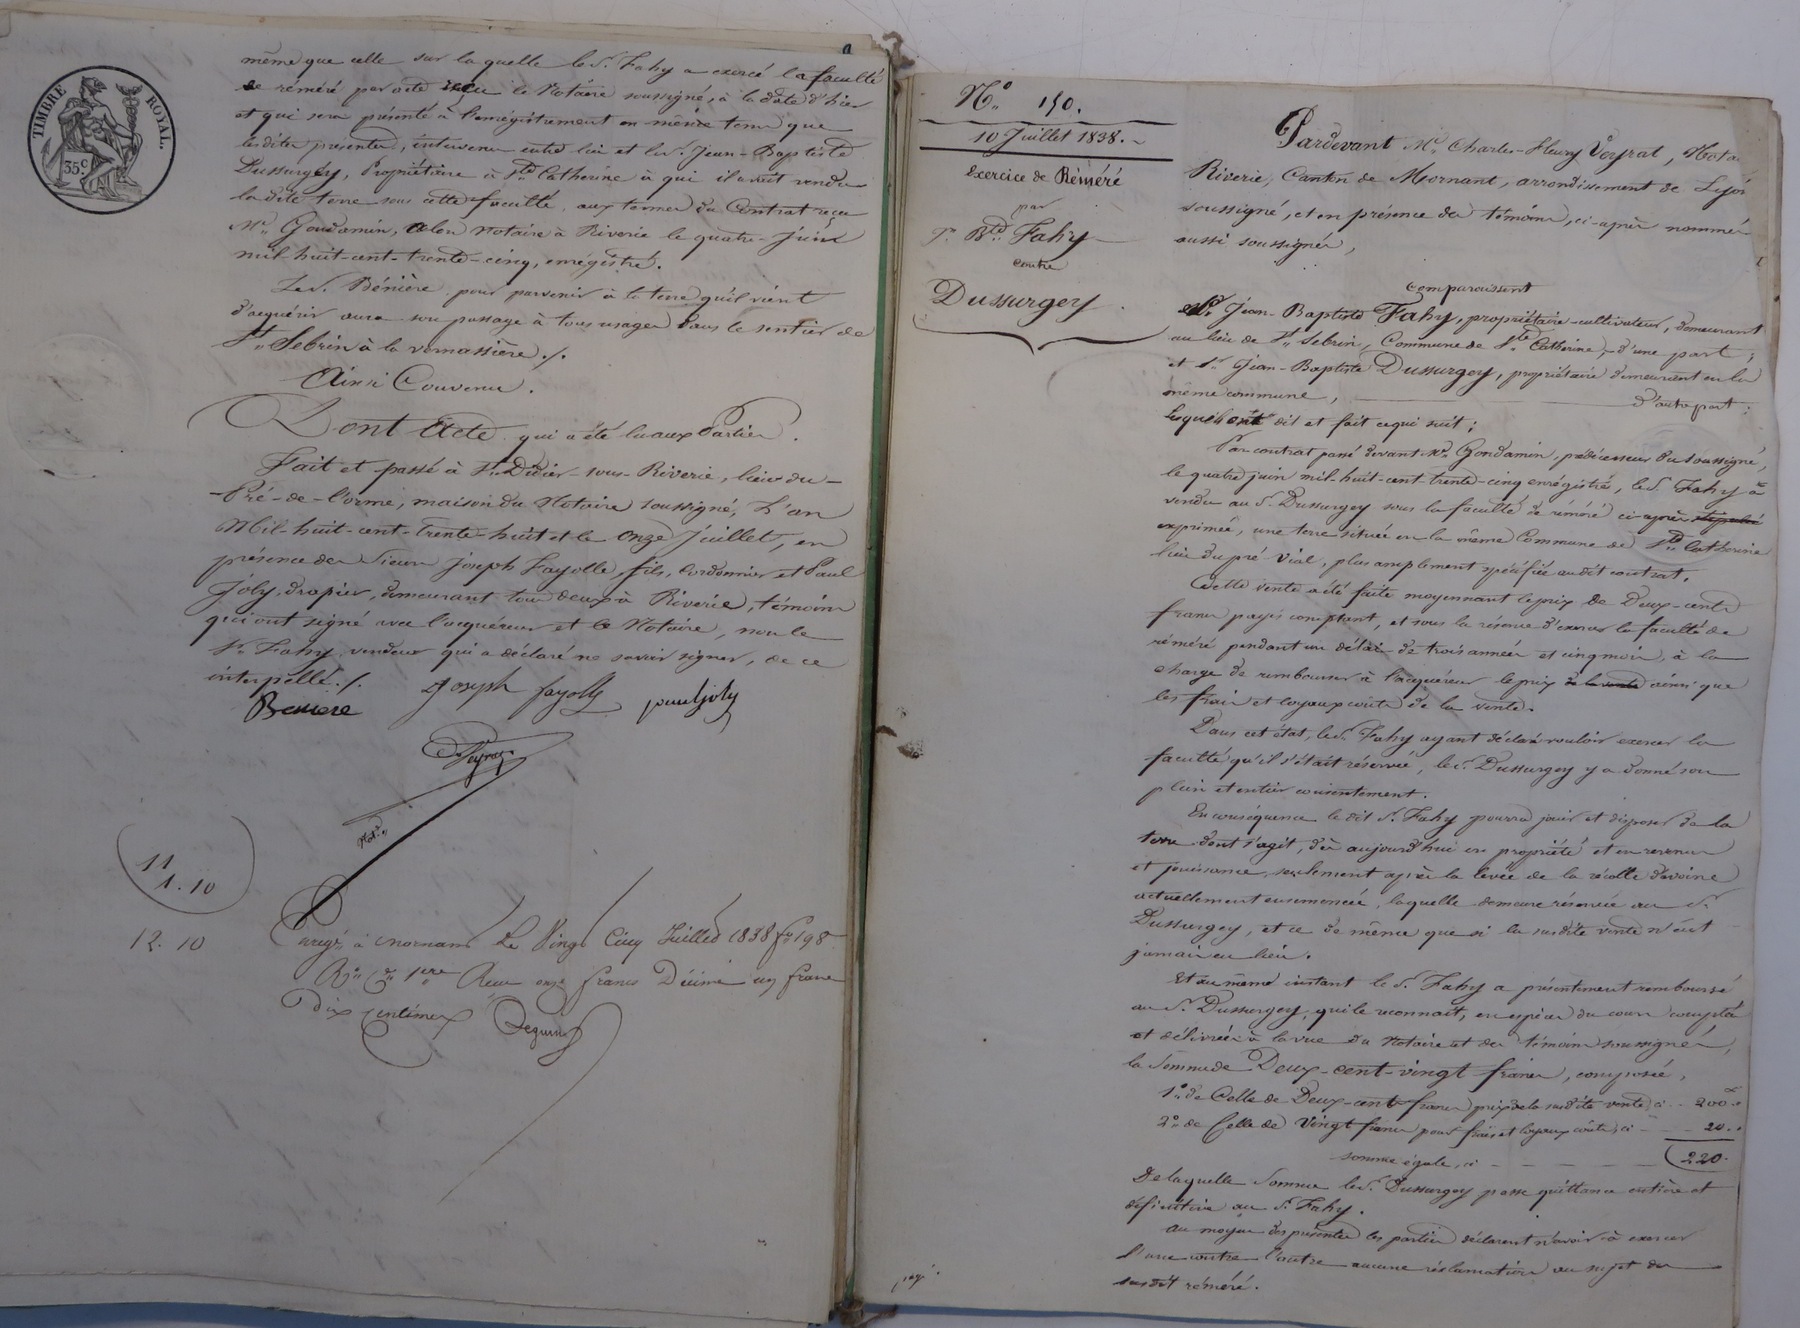 TIMBRE ROYAL.
35 c
même que celle sur laquelle le S. Fahy a exercé la faculté
de réméré par acte reçu le Notaire soussigné, à la date d'hier
et qui sera présenté à l'enregistrement en même tems que
les dites présentes, intervenu entre lui et le S. Jean-Baptiste
Dussurgey, Propriétaire à Ste Catherine à qui il avait vendu
la dite terre sous cette faculté, aux termes du Contrat reçu
Me Gondamin, alors Notaire à Riverie le quatre Juin
mil huit-cent-trente-cinq, enregistré.
Le S. Bénière pour parvenir à la terre qu'il vient
d'acquérir aura son passage à tous usages dans le sentier de
St Sebrin à la vernassière ./.
Ainsi Convenu.
Dont Acte, qui a été lu aux Parties.
Fait et passé à St Didier-sous-Riverie, lieu du
Pré-de-l'orme, maison du Notaire soussigné, L'an
Mil-huit-cent-trente-huit et le onze Juillet, en
présence des Sieurs Joseph Fayolle, fils, cordonnier et Paul
Joly, drapier, demeurant tous deux à Riverie, témoins
qui ont signé avec l'acquéreur et le Notaire, non le
Sr Fahy, vendeur qui a déclaré ne savoir signer, de ce
interpellé ./.
Beniere Joseph fayolle paul joly
Veyrat
Not.re
11
1. 10
12. 10
Enregé à Mornant Le Vingt Cinq Juillet 1838 fo 198
Ro Ce 1ere Reçu onze francs Décime un franc
dix centimes
No 150.
10 Juillet 1838.
Exercice de Réméré
par
Jn Bte Fahy
contre
Dussurgey.
Pardevant Me Charles-Fleury Veyrat, Nota
Riverie, Canton de Mornant, arrondissement de Lyon
soussigné, et en présence des témoins, ci-après nommés
aussi soussignés,
Comparaissent
Sr Jean-Baptiste Fahy, propriétaire-cultivateur, demeurant
au lieu de St Sebrin, Commune de Ste Catherine, d'une part;
et Sr Jean-Baptiste Dussurgey, propriétaire demeurant en la
même commune, d'autre part;
Lesquels ont dit et fait ce qui suit;
Par contrat passé devant Me Gondamin, prédécesseur du soussigné,
le quatre juin mil-huit-cent-trente-cinq enregistré, le S. Fahy a
vendu au S. Dussurgey sous la faculté de réméré ci-après stipulée
exprimée, une terre située en la même Commune de Ste Catherine
lieu du pré Vial, plus amplement spécifiée audit contrat.
Cette vente a été faite moyennant le prix de Deux-cents
francs payés comptant, et sous la réserve d'exercer la faculté de
réméré pendant un délai de trois années et cinq mois, à la
charge de rembourser à l'acquéreur le prix de la vente ainsi que
les frais et loyaux coûts de la vente.
Dans cet état, le S. Fahy ayant déclaré vouloir exercer la
faculté qu'il s'était réservée, le S. Dussurgey y a donné son
plein et entier consentement.
En conséquence le dit S. Fahy pourra jouir et disposer de la
terre dont s'agit, dès aujourd'hui en propriété et en revenu
et jouissance, seulement après la levée de la récolte d'avoine
actuellement ensemencée, laquelle demeure réservée au S.
Dussurgey, et ce de même que si la susdite vente n'eût
jamais eu lieu.
Et au même instant le S. Fahy a présentement remboursé
au S. Dussurgey, qui le reconnait, en espèces du cours comptées
et délivrées à la vue du Notaire et des témoins soussignés,
la Somme de Deux-cent-vingt francs, composée,
1o de Celle de Deux-cent francs, prix de la susdite vente, ci 200.
2o de Celle de Vingt francs pour frais et loyaux coûts, ci 20.
somme égale, ci 220.
De laquelle Somme le S. Dussurgey passe quittance entière et
définitive au S. Fahy.
Au moyen des présentes les parties déclarent n'avoir à exercer
l'une contre l'autre aucune réclamation au sujet du
susdit réméré.